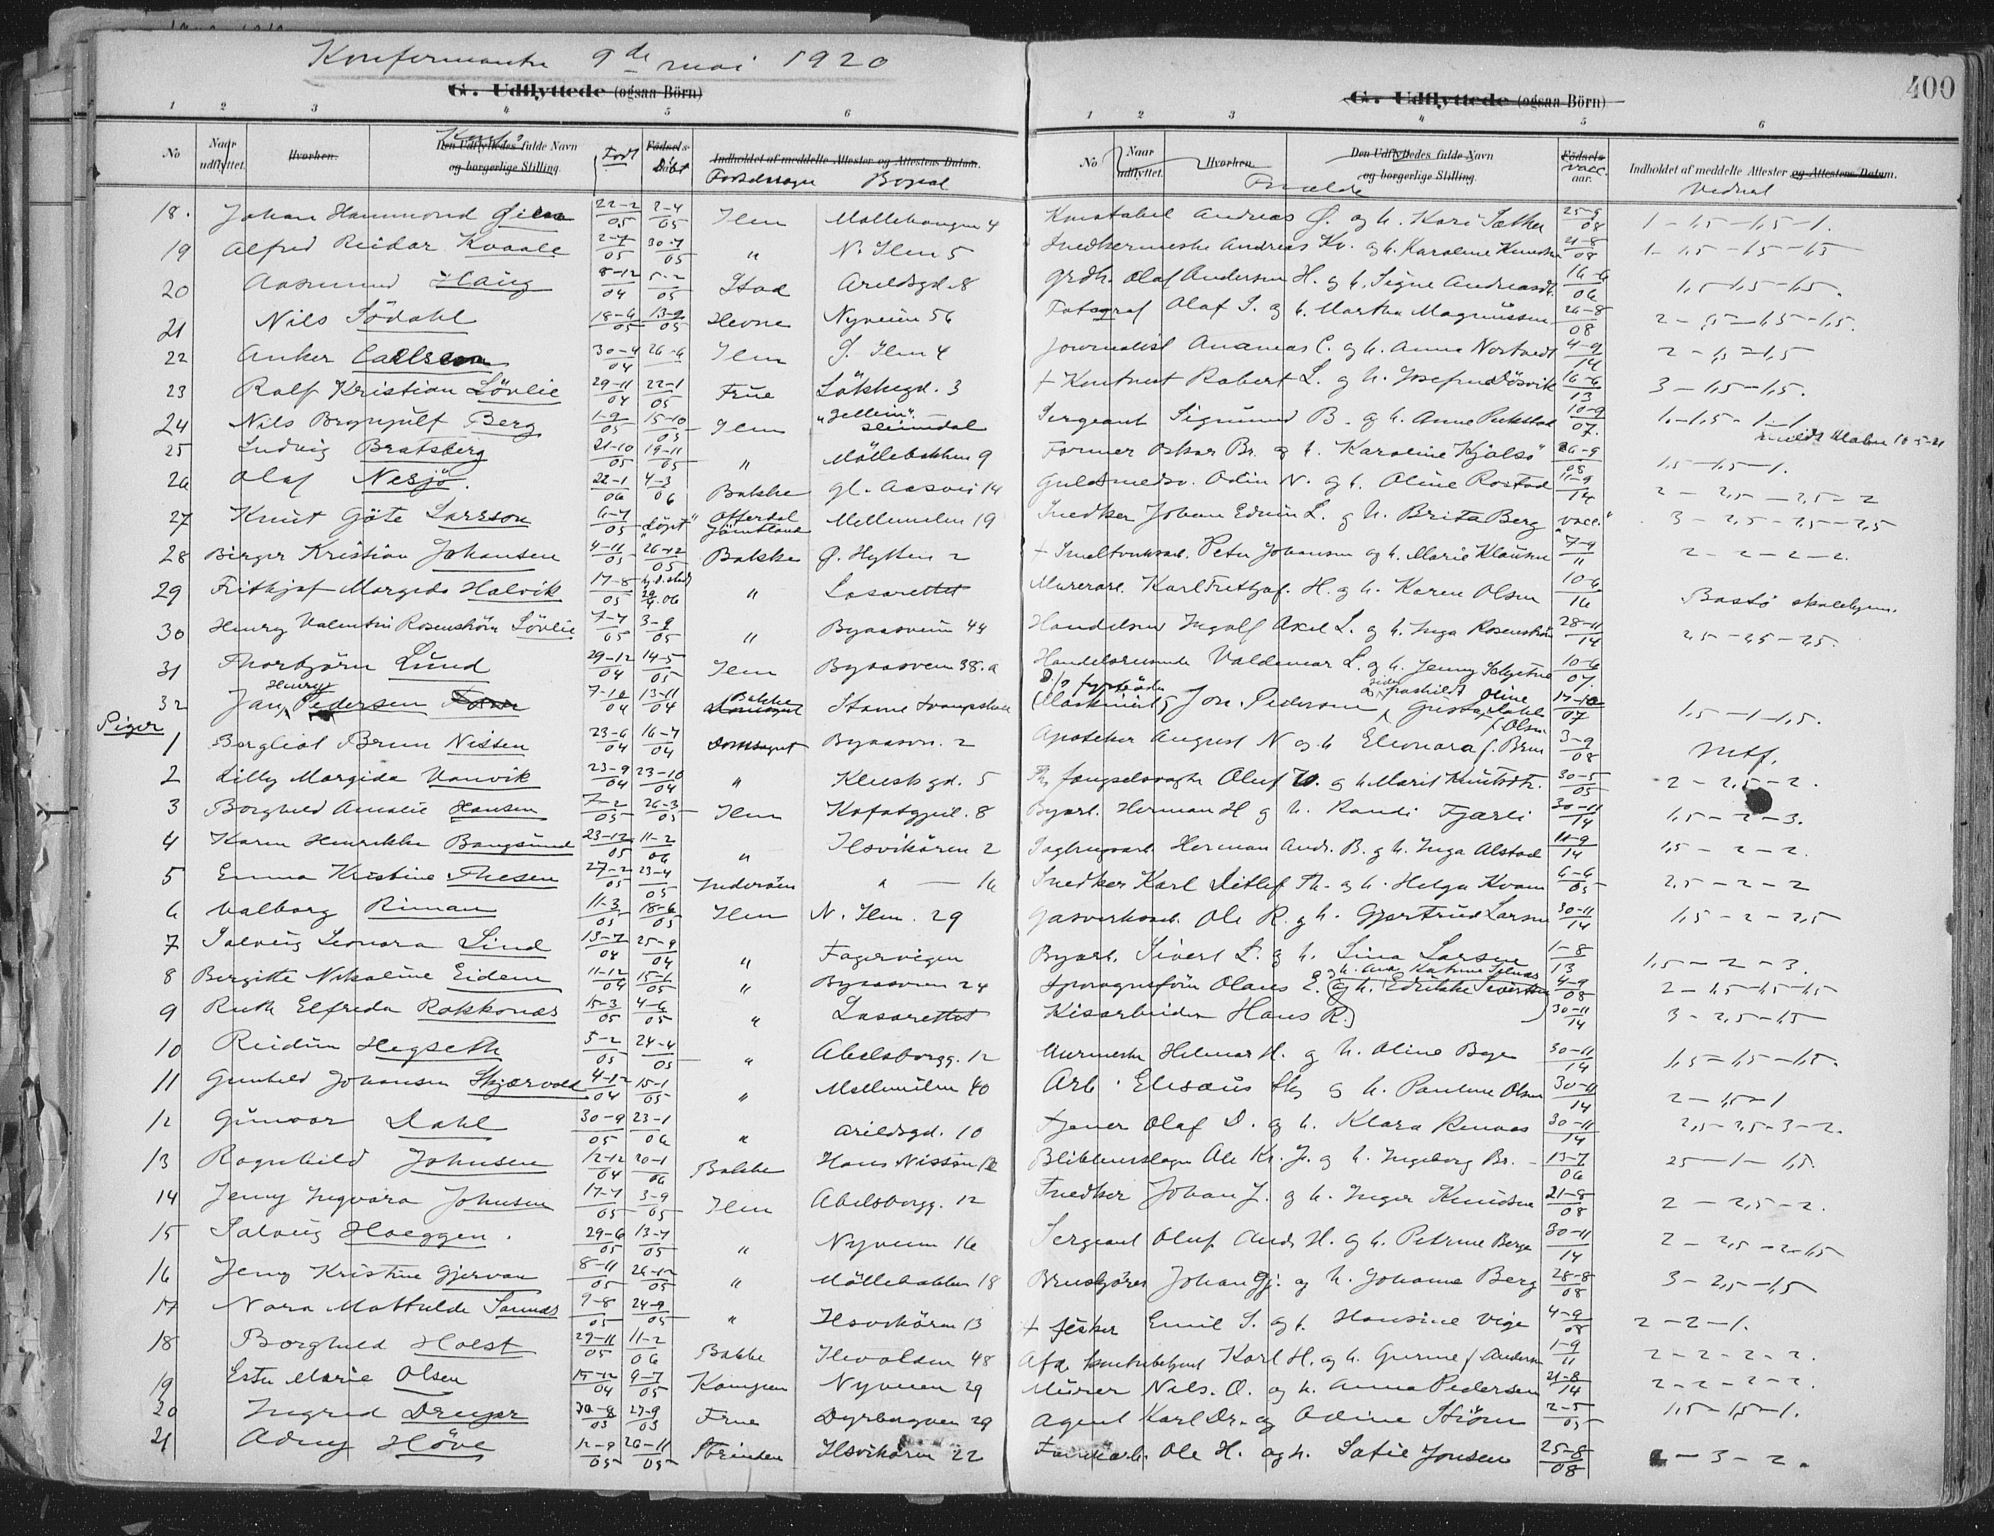 Konfirmanter 9de mai 1920
G. Udflyttede (ogsaa Börn)
G. Udflyttede (ogsaa Börn)
400
1 2 3 4 5 6
1 2 3 4 5 6
No Naar udflyttet. Hvorhen. Den Udflyttedes fulde Navn og borgerlige Stilling. Födt Födsels- Döbt Indholdet af meddelte Attester og Attestens Datum. Födselssogn Bopæl
No Naar udflyttet. Hvorhen. Den Udflyttedes fulde Navn og borgerlige Stilling. Födsels- aar. Vacc. Indholdet af meddelte Attester og Attestens Datum.
18. Johan Hammond 22-2/05 2-4/05 Ilen Möllebangen 4 Konstabel Andreas Ø. og h. Kari Sæther 25-9/08 1-1,5-1,5-1.
19 Alfred Reidar Kvaale 2-7/05 30-7/05 " N. Ilen 5 Snedkermester Andreas Kv. og h. Karoline 21-8/08 1-1,5-1,5-1,5
20 Aasmund Haug 8-12/04 5-2/05 Stod Arildsgd. 8 Grdb. Olaf Andersen H. og h. Signe Andreasdt. 16-6/06 1,5-1,5-1,5.
21 Nils Södahl 18-6/05 13-9/05 Hevne Nyveien 56 Fotograf Olaf S. og h. Martha Magnussen 26-8/08
22 Anker Carlsen 30-4/04 26-6 Ilen Ø. Ilen 4 Journalist Ananias C. og h. Anna Nortvedt 4-9/14
23 Ralf Kristian Lövlie 29-11/04 22-1/05 Frue Lökkegd. 3 + Kontorist Robert L. og h. Josefine Dösvik 16-6/13 3-1,5-1,5.
24 Nils Brynjulf Berg 1-9/05 15-10/05 Ilen Heimdal Sergeant Sigmund B. og h. Anna 10-9/07. 1-1,5-1-1
25 Ludvig Bratsberg 21-10/05 19-11/05 " Möllebakken 9 Former Oskar Br. og h. Karoline Kjölsö 26-9/08 1,5-1,5-1.
26 Olaf Nesjö. 22-1/06 4-3/06 Bakke gl. Aasvei 14 Guldsmedsv. Odin N. og h. Oline Rostad 11-9/14 2-2,5-2,5-2
27 Knut Göte Larsson 6-7/05 "döpt" Offerdal Jämtland Mellemilen 19 Snedker Johan Edvin L. og h. Brita Berg "vacc." 3-2,5-2,5-2,5
28 Birger Kristian Johansen 4-11/05 26-12/05 Bakke Ø. Hytten 2 + Peter Johansen og h. Marie Klausen 7-9/11 2-2-2-2.
29 Frithjof Margido Halvik 17-8/05 " Lasarettet Murerarb. Karl Frithjof H. og h. Karen Olsen 10-6/16 Bastö skolehjem.
30 Henry Valentin Rosenström Lövlie 7-7/05 3-9/05 " Byaasveien 44 Ingolf Axel L. og h. Inga Rosenström 28-11/14 2,5-2,5-2,5.
31 Thorbjörn Lund 29-12/04 14-5/05 Ilen Byaasveien 38.a Handelsreisende Valdemar L. og h. Jenny 10-6/07.
32 Jan Henry Pedersen 7-10/04 13-11/04 Bakke Jon. Pedersen 17-10/07 1,5-1-1,5.
Piger
1 Bergliot Brun Nissen 23-6/04 16-7/04 Domsognet Byaasvn. 2 Apotheker August N og h Eleonora f. Brun 3-9/08 Mtf.
2 Lilly Margida Vanvik 23-9/04 23-10/04 " Klostergd. 5 Fængselsvagte Oluf V. og h. Marit Knutsdtr. 30-5/05 2-2,5-2.
3 Borghild Amalie Hansen 7-2/05 26-3/05 Ilen 8 Byarb. Herman H og h. Randi Fjærli 30-11/14 1,5-2-3.
4 Karen Henrikke Bangsund 23-12/05 11-2/06 " Ilsvikören 2 Sagbrugsarb. Herman And. B. og h. Inga Alstad 11-9/14 1,5-2-2.
5 Emma Kristine Thesen 27-2/05 23-4/05 Inderöen " — 16 Snedker Karl Ditlef Th. og h. Helga Kvam 6-6/05 2,5-2-2
6 Valborg Riman 11-3/05 18-6/05 Ilen N. Ilen. 29 Gasverksarb. Ole R. og h. Gjertrud Larsen 30-11/14 1,5-2-2,5
7 Solveig Leonora Lind 13-7/04 25-9/04 " Fagervigen Byarb. Sivert L. og h. Lina Larsen 1-8/13 1,5-2-3.
8 Bergitte Nikoline Eidem 11-12/04 15-6/05 " Byaasveien 24 Sporvognsförer Olaus E. og h. Edrikke Sivertsen 4-9/08 2-1,5-1,5-1,5
9 Ruth Elfreda Rokkones 15-3/05 4-6/05 " Lasarettet Kisarbeider Hans R. 30-11/14 3-2,5-1,5
10 Reidun Hegseth 5-2/05 24-4/05 " Abelsborgg. 12 Murmester Hilmar H. og h. Oline 30-11/14 1,5-1,5-1,5.
11 Gunhild Johansen Skjærvold 4-12/04 15-1/05 " Mellemilen 40 Arb. Elisæus Skj og h. Pauline Olsen 30-11/14 2-1,5-1
12 Gunvor Dahl 30-9/05 23-1/06 " Arildsgd. 10 Tjener Olaf D. og h. Klara Renaas 30-11/14 2,5-2,5-3-2.
13 Ragnhild Johnsen 12-12/04 20-1/06 Bakke Hans Nissens 12 Ole Kr. J. og h. Ingeborg Br. 13-7/06
14 Jenny Ingvara Johnsen 17-7/05 3-9/05 Ilen Abelsborgg. 12 Snedker Johan J. og h. Inger Knudsen 21-8/08 2-2,5-2.
15 Solveig Hoeggen. 29-6/05 13-7/05 " Nyveien 16 Sergeant Oluf And. H. og h. Petrine Berge 30-11/14 2-2,5-2-1,5
16 Jeny Kristine Gjervan 8-11/05 26-12/05 " Möllebakken 18 Johan Gj. og h. Johanne Berg 28-8/08 3-2,5-1,5
17 Nora Mathilde 9-8/05 24-9/05 " Ilsvikören 13 + fisker Emil S. og h. Hansine Vige 4-9/08 2-2-1.
18 Borghild Holst 29-11/05 11-2/06 Bakke Ilevolden 48 Karl H. og h. f. Andersen 1-9/11 2-2-2-2.
19 Ester Marie Olsen 15-12/04 9-7/05 Nyveien 29 Murer Nils. O. og h. Anna Pedersen 21-8/14 2-2-2-2.
20 Ingrid Dreyer 30-8/03 27-9/03 Frue Dyrborgvn 29 Agent Karl Dr. og Odine Störm 2-5/05 1,5-1,5-1.
21 Adny Höve 12-9/05 26-11/05 Strinden Ilsvikören 22 Ole H. og h. Sofie Jonsen 25-8/08 -3-2.